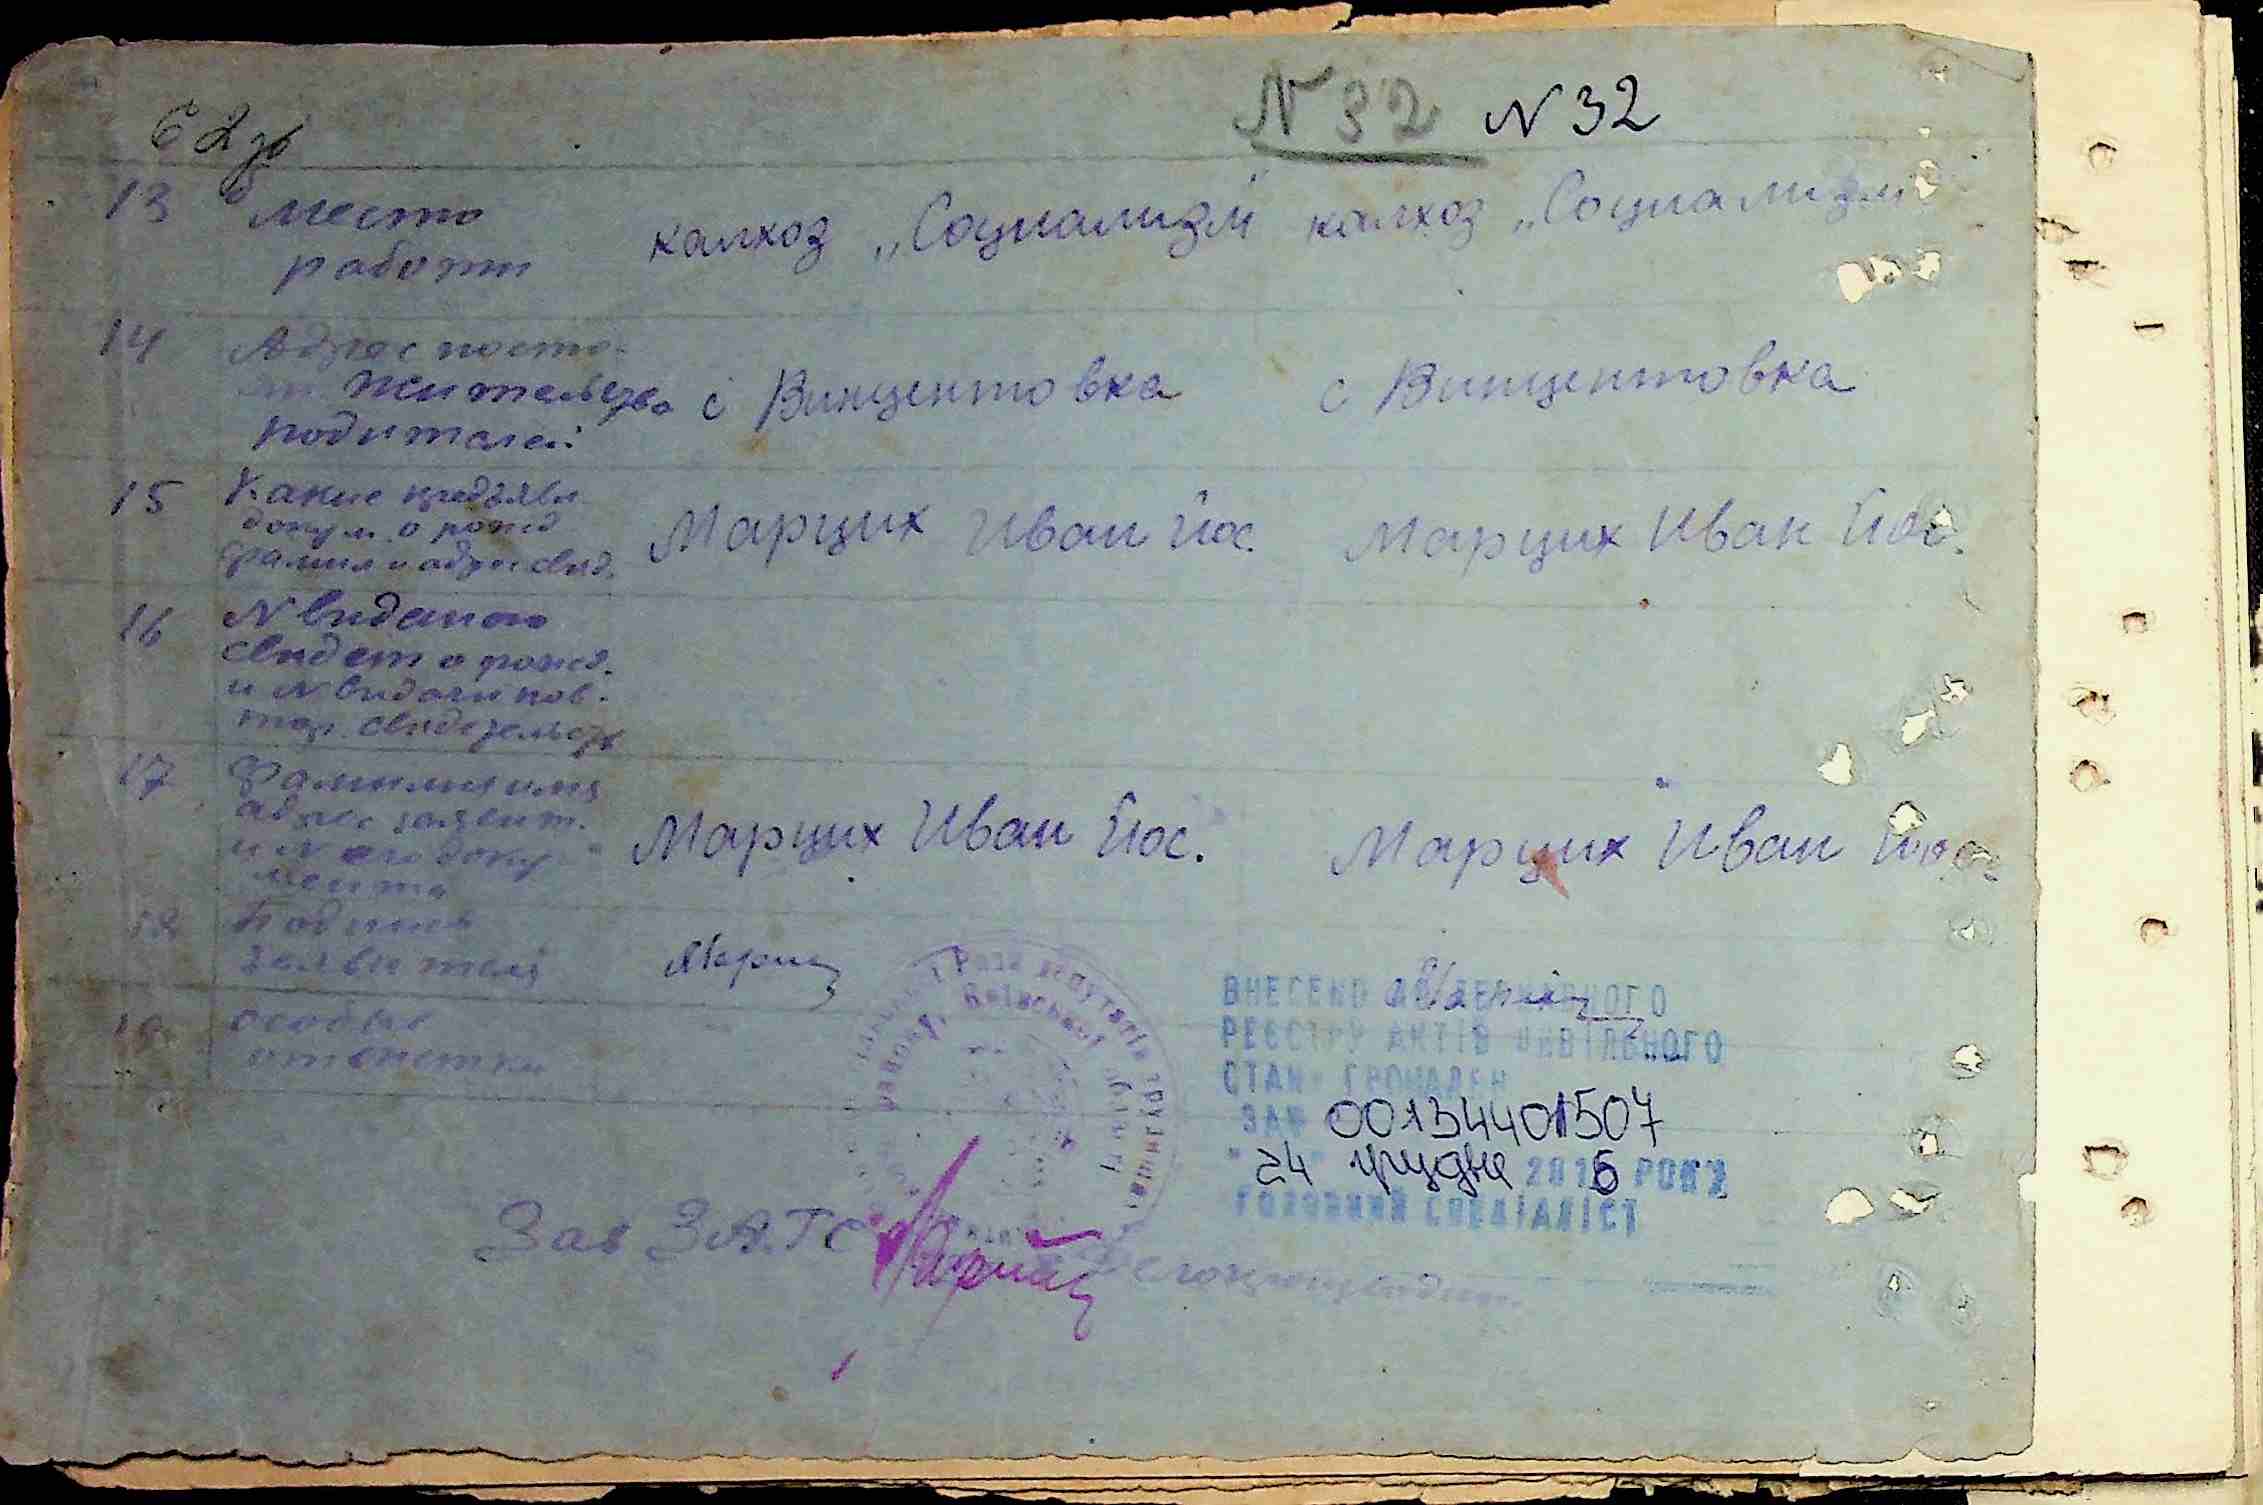 N 32 N 32
13 место
работи
калхоз „Социализм" калхоз „Социализм"
14 Адрес посто-
жительство
родителей
с Винцентовка с Винцентовка
15 Какие предъявл
докум. о рожд
фамил и адрес свид.
Марцих Иван Йос. Марцих Иван Йос.
16 N виданого
свидет о рожд.
и N видачи пов-
тор. свидетельств
17 Фамилия имя
адрес заявит.
и N его доку
мента
Марцих Иван Йос. Марцих Иван Йос.
18 Подпись
заявителя
19 особые
отметки
ВНЕСЕНО ДО ДЕРЖАВНОГО
РЕЄСТРУ АКТІВ ЦИВІЛЬНОГО
СТАНУ ГРОМАДЯН
ЗА № 00134401507
"24" грудня 2016 РОКУ
ГОЛОВНИЙ СПЕЦІАЛІСТ
Зав ЗАГС